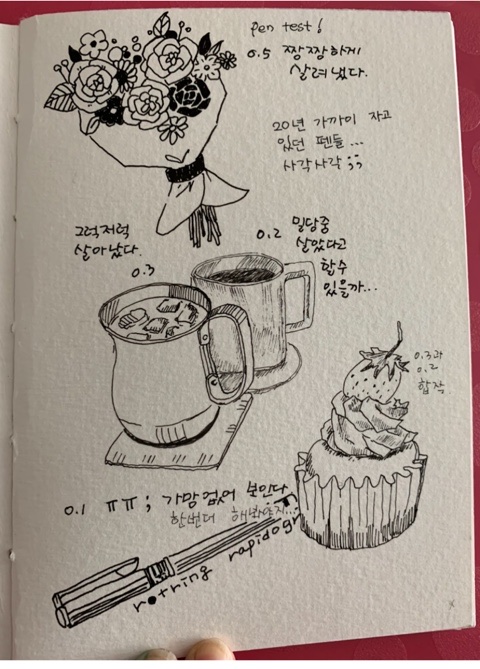 pen test!
0.5 짱짱하게
살려냈다.
20년 가까이 자고
있던 펜들...
사각사각 ;;
그럭저럭
살아났다.
0.3
0.2 밀당중
살았다고
할수
있을까...
0.3과
0.2
합작
0.1 ㅠㅠ; 가망없어 보인다
한번더 해봐야지...
rotring rapidogr